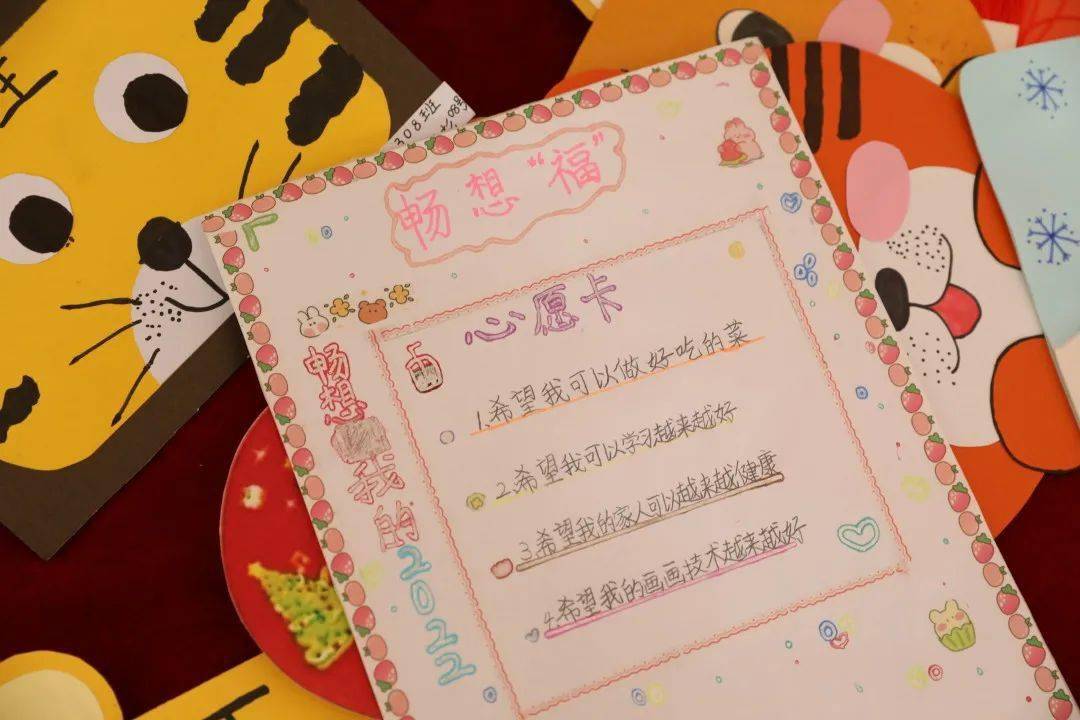 308班
08号
畅想“福”
心愿卡
1.希望我可以做好吃的菜
2.希望我可以学习越来越好
3.希望我的家人可以越来越健康
4.希望我的画画技术越来越好
畅想
我的
2022